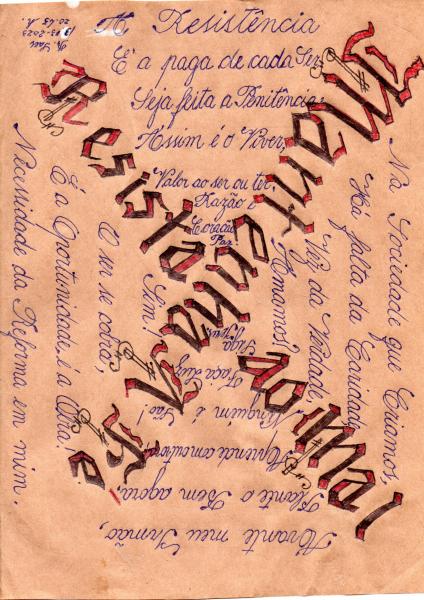 A Resistência
É a paga de cada Ser,
Seja feita a Penitência,
Assim é o Viver,
Valor ao ser ou ter,
Razão e
Coração
Paz.
Na Sociedade que Criamos,
Há falta da Caridade,
Vez da Verdade,
Amamos?
Avante meu Irmão,
Plante o Bem agora,
Aprenda
Ninguém é São!
Faça luz
Siga
Necessidade da Reforma em mim.
É a Oportunidade, é a Obra!
O ser se cobra,
Sim!
Resista ao mal
Mantenha a Fé